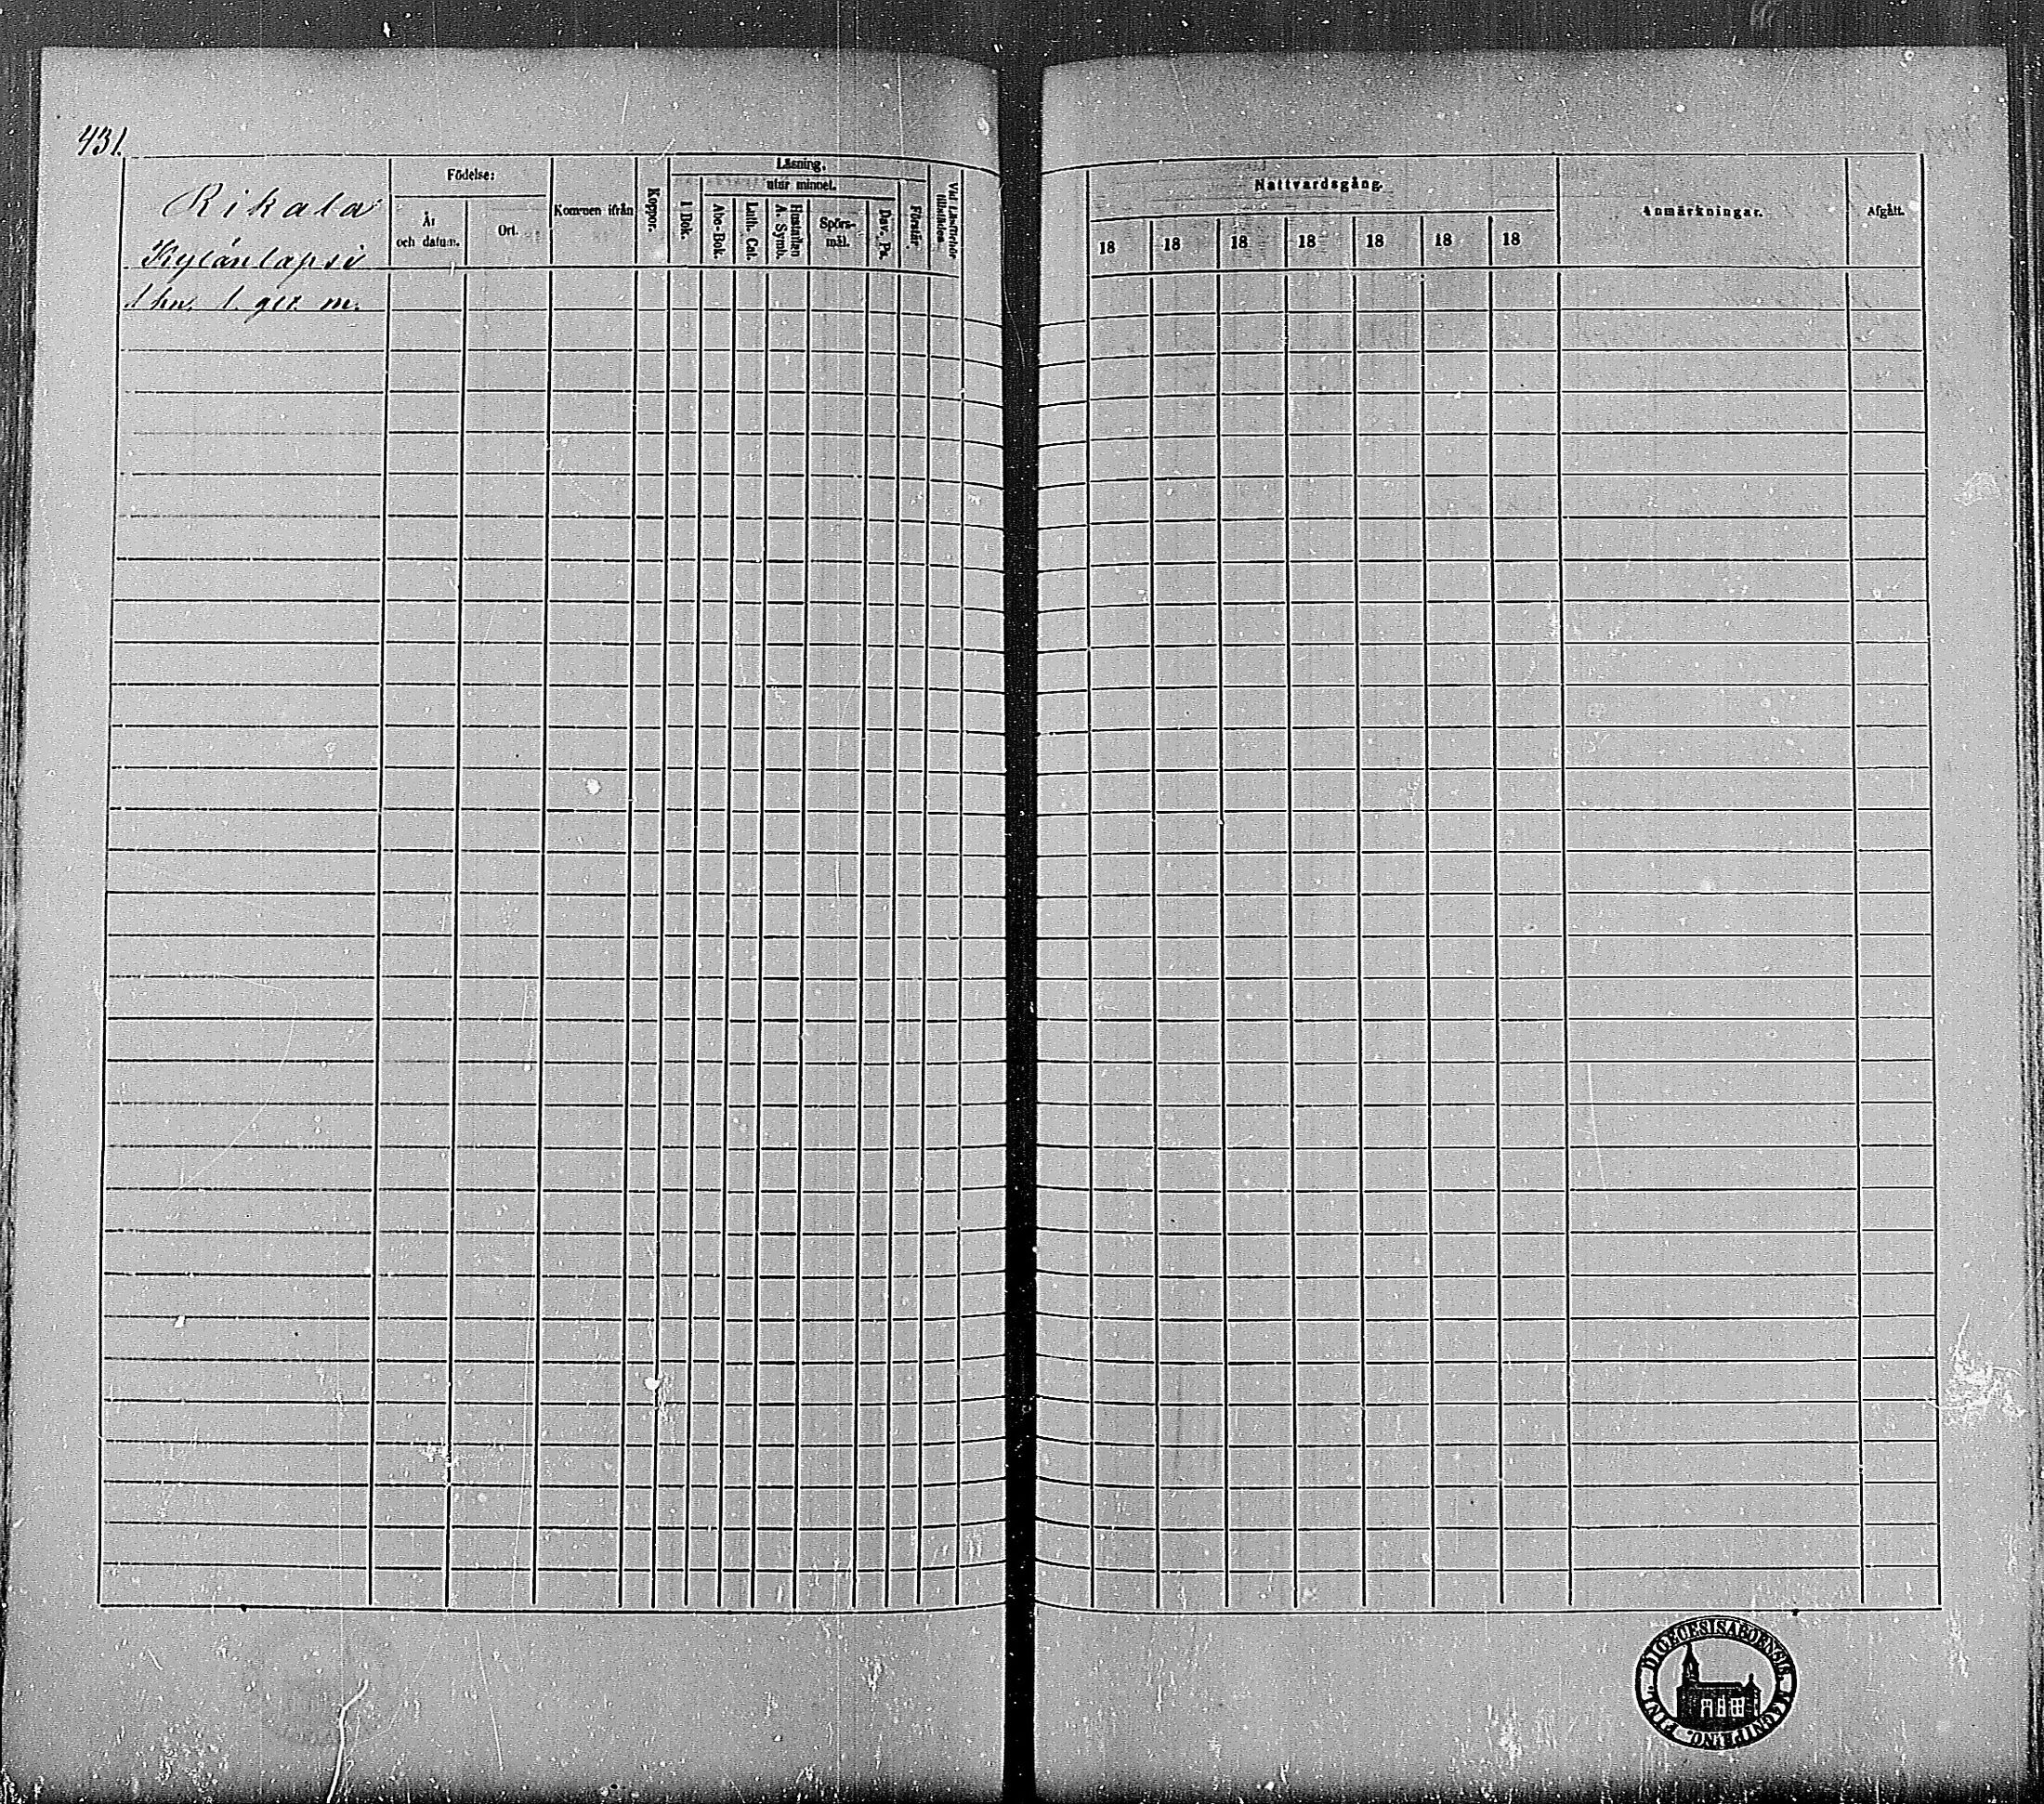 431.
Rikala
Kylänlapsi
1 hn. 1. get. m.
Födelse:
År
och datum.
Ort.
Kommen ifrån
Koppor.
Läsning.
utur minnet.
I Bok.
Abc-Bok.
Luth. Cat.
Hustaflan
A. Symb.
Spörs-
mål.
Dav. Ps.
Förstår
Vid Läsförhör
tillstädes.
Nattvardsgång.
18 18 18 18 18 18 18
Anmärkningar.
Afgått.
DIOECESIS ABOENSIS MAGNI PRINC. FINL.